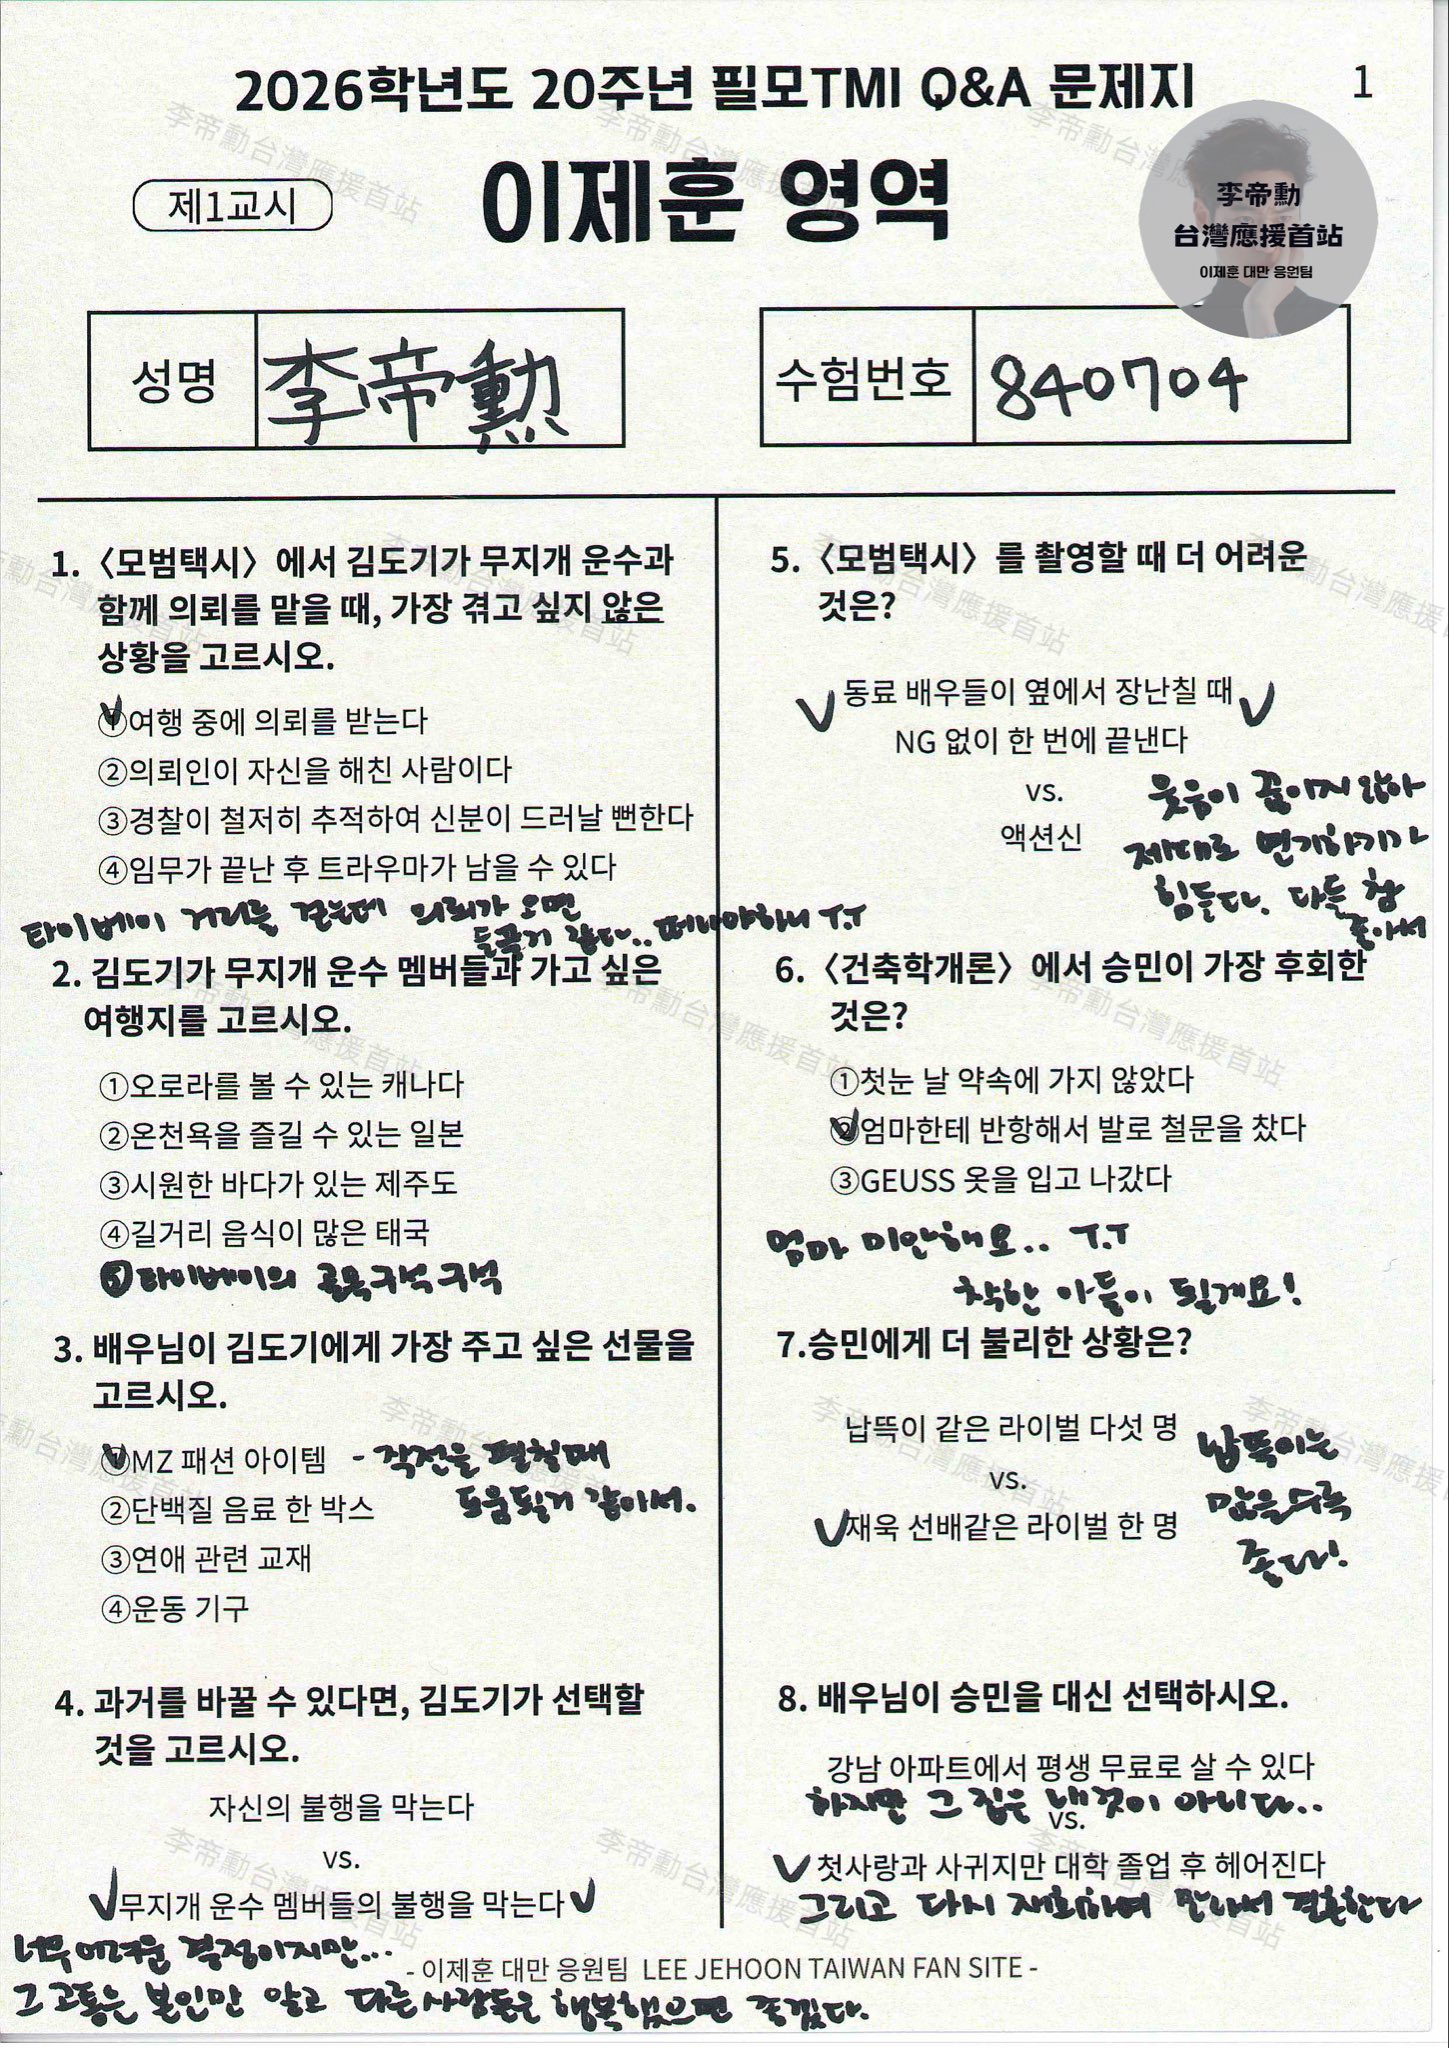 2026학년도 20주년 필모TMI Q&A 문제지
1
제1교시
이제훈 영역
李帝勳
台灣應援首站
이제훈 대만 응원팀
성명
李帝勳
수험번호
840704
1.〈모범택시〉에서 김도기가 무지개 운수과
함께 의뢰를 맡을 때, 가장 겪고 싶지 않은
상황을 고르시오.
①여행 중에 의뢰를 받는다
②의뢰인이 자신을 해친 사람이다
③경찰이 철저히 추적하여 신분이 드러날 뻔한다
④임무가 끝난 후 트라우마가 남을 수 있다
타이베이 거리를 걷는데 의뢰가 오면
들곡기 싫다.. 떠나야하니 T.T
2. 김도기가 무지개 운수 멤버들과 가고 싶은
여행지를 고르시오.
①오로라를 볼 수 있는 캐나다
②온천욕을 즐길 수 있는 일본
③시원한 바다가 있는 제주도
④길거리 음식이 많은 태국
⑤타이베이의 골목구석 구석
3. 배우님이 김도기에게 가장 주고 싶은 선물을
고르시오.
①MZ 패션 아이템 - 작전을 펼칠때
도움될거 같아서.
②단백질 음료 한 박스
③연애 관련 교재
④운동 기구
4. 과거를 바꿀 수 있다면, 김도기가 선택할
것을 고르시오.
자신의 불행을 막는다
vs.
무지개 운수 멤버들의 불행을 막는다
너무 어려운 결정이지만...
그 고통은 본인만 알고 다른사람들은 행복했으면 좋겠다.
5.〈모범택시〉를 촬영할 때 더 어려운
것은?
동료 배우들이 옆에서 장난칠 때
NG 없이 한 번에 끝낸다
vs.
액션신
웃음이 끊이지 않아
제대로 연기하기가
힘들다. 다들 참
좋아서
6.〈건축학개론〉에서 승민이 가장 후회한
것은?
①첫눈 날 약속에 가지 않았다
②엄마한테 반항해서 발로 철문을 찼다
③GEUSS 옷을 입고 나갔다
엄마 미안해요.. T.T
착한 아들이 될게요!
7.승민에게 더 불리한 상황은?
납뜩이 같은 라이벌 다섯 명
vs.
재욱 선배같은 라이벌 한 명
납뜩이는
많을수록
좋다!
8. 배우님이 승민을 대신 선택하시오.
강남 아파트에서 평생 무료로 살 수 있다
하지만 그 집은 내것이 아니다..
vs.
첫사랑과 사귀지만 대학 졸업 후 헤어진다
그리고 다시 재회하여 만나서 결혼한다
- 이제훈 대만 응원팀 LEE JEHOON TAIWAN FAN SITE -